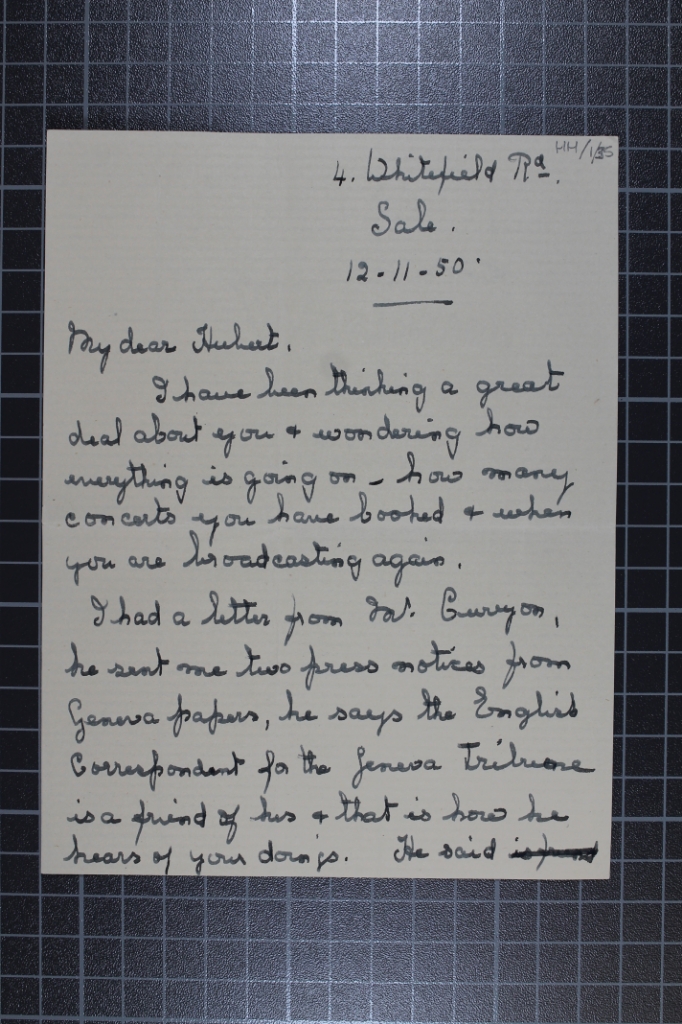 HH/1/35
4. Whitefield Rd.
Sale.
12-11-50.
My dear Hubert.
I have been thinking a great
deal about you & wondering how
everything is going on - how many
concerts you have booked & when
you are broadcasting again.
I had a letter from Mr. Curzon,
he sent me two press notices from
Geneva papers, he says the English
Correspondent for the Geneva Tribune
is a friend of his & that is how he
hears of your doings. He said